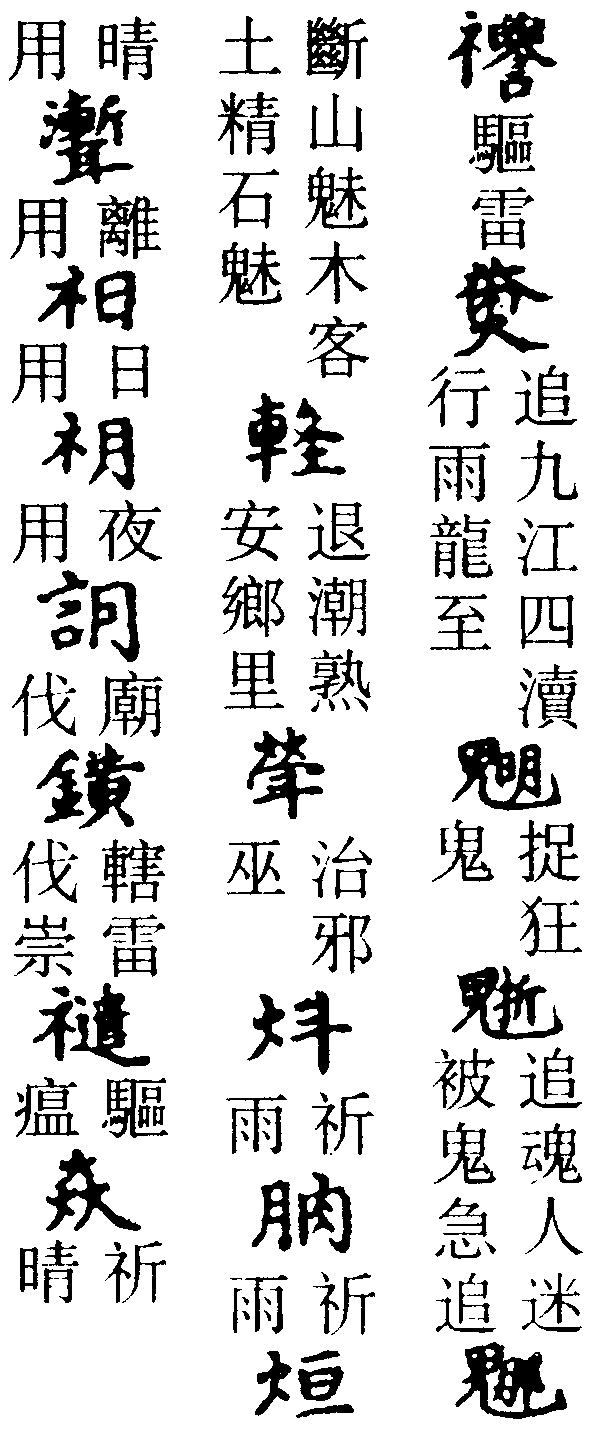 驅雷
追九江四瀆
行雨龍至
捉狂
鬼
追魂人迷
被鬼急追
斷山魅木客
土精石魅
退潮熟
安鄉里
治邪
巫
炓
祈
雨
祈
雨
烜
晴
用
離
用
日
用
夜
用
廟
伐
轄雷
伐崇
驅
瘟
祈
晴